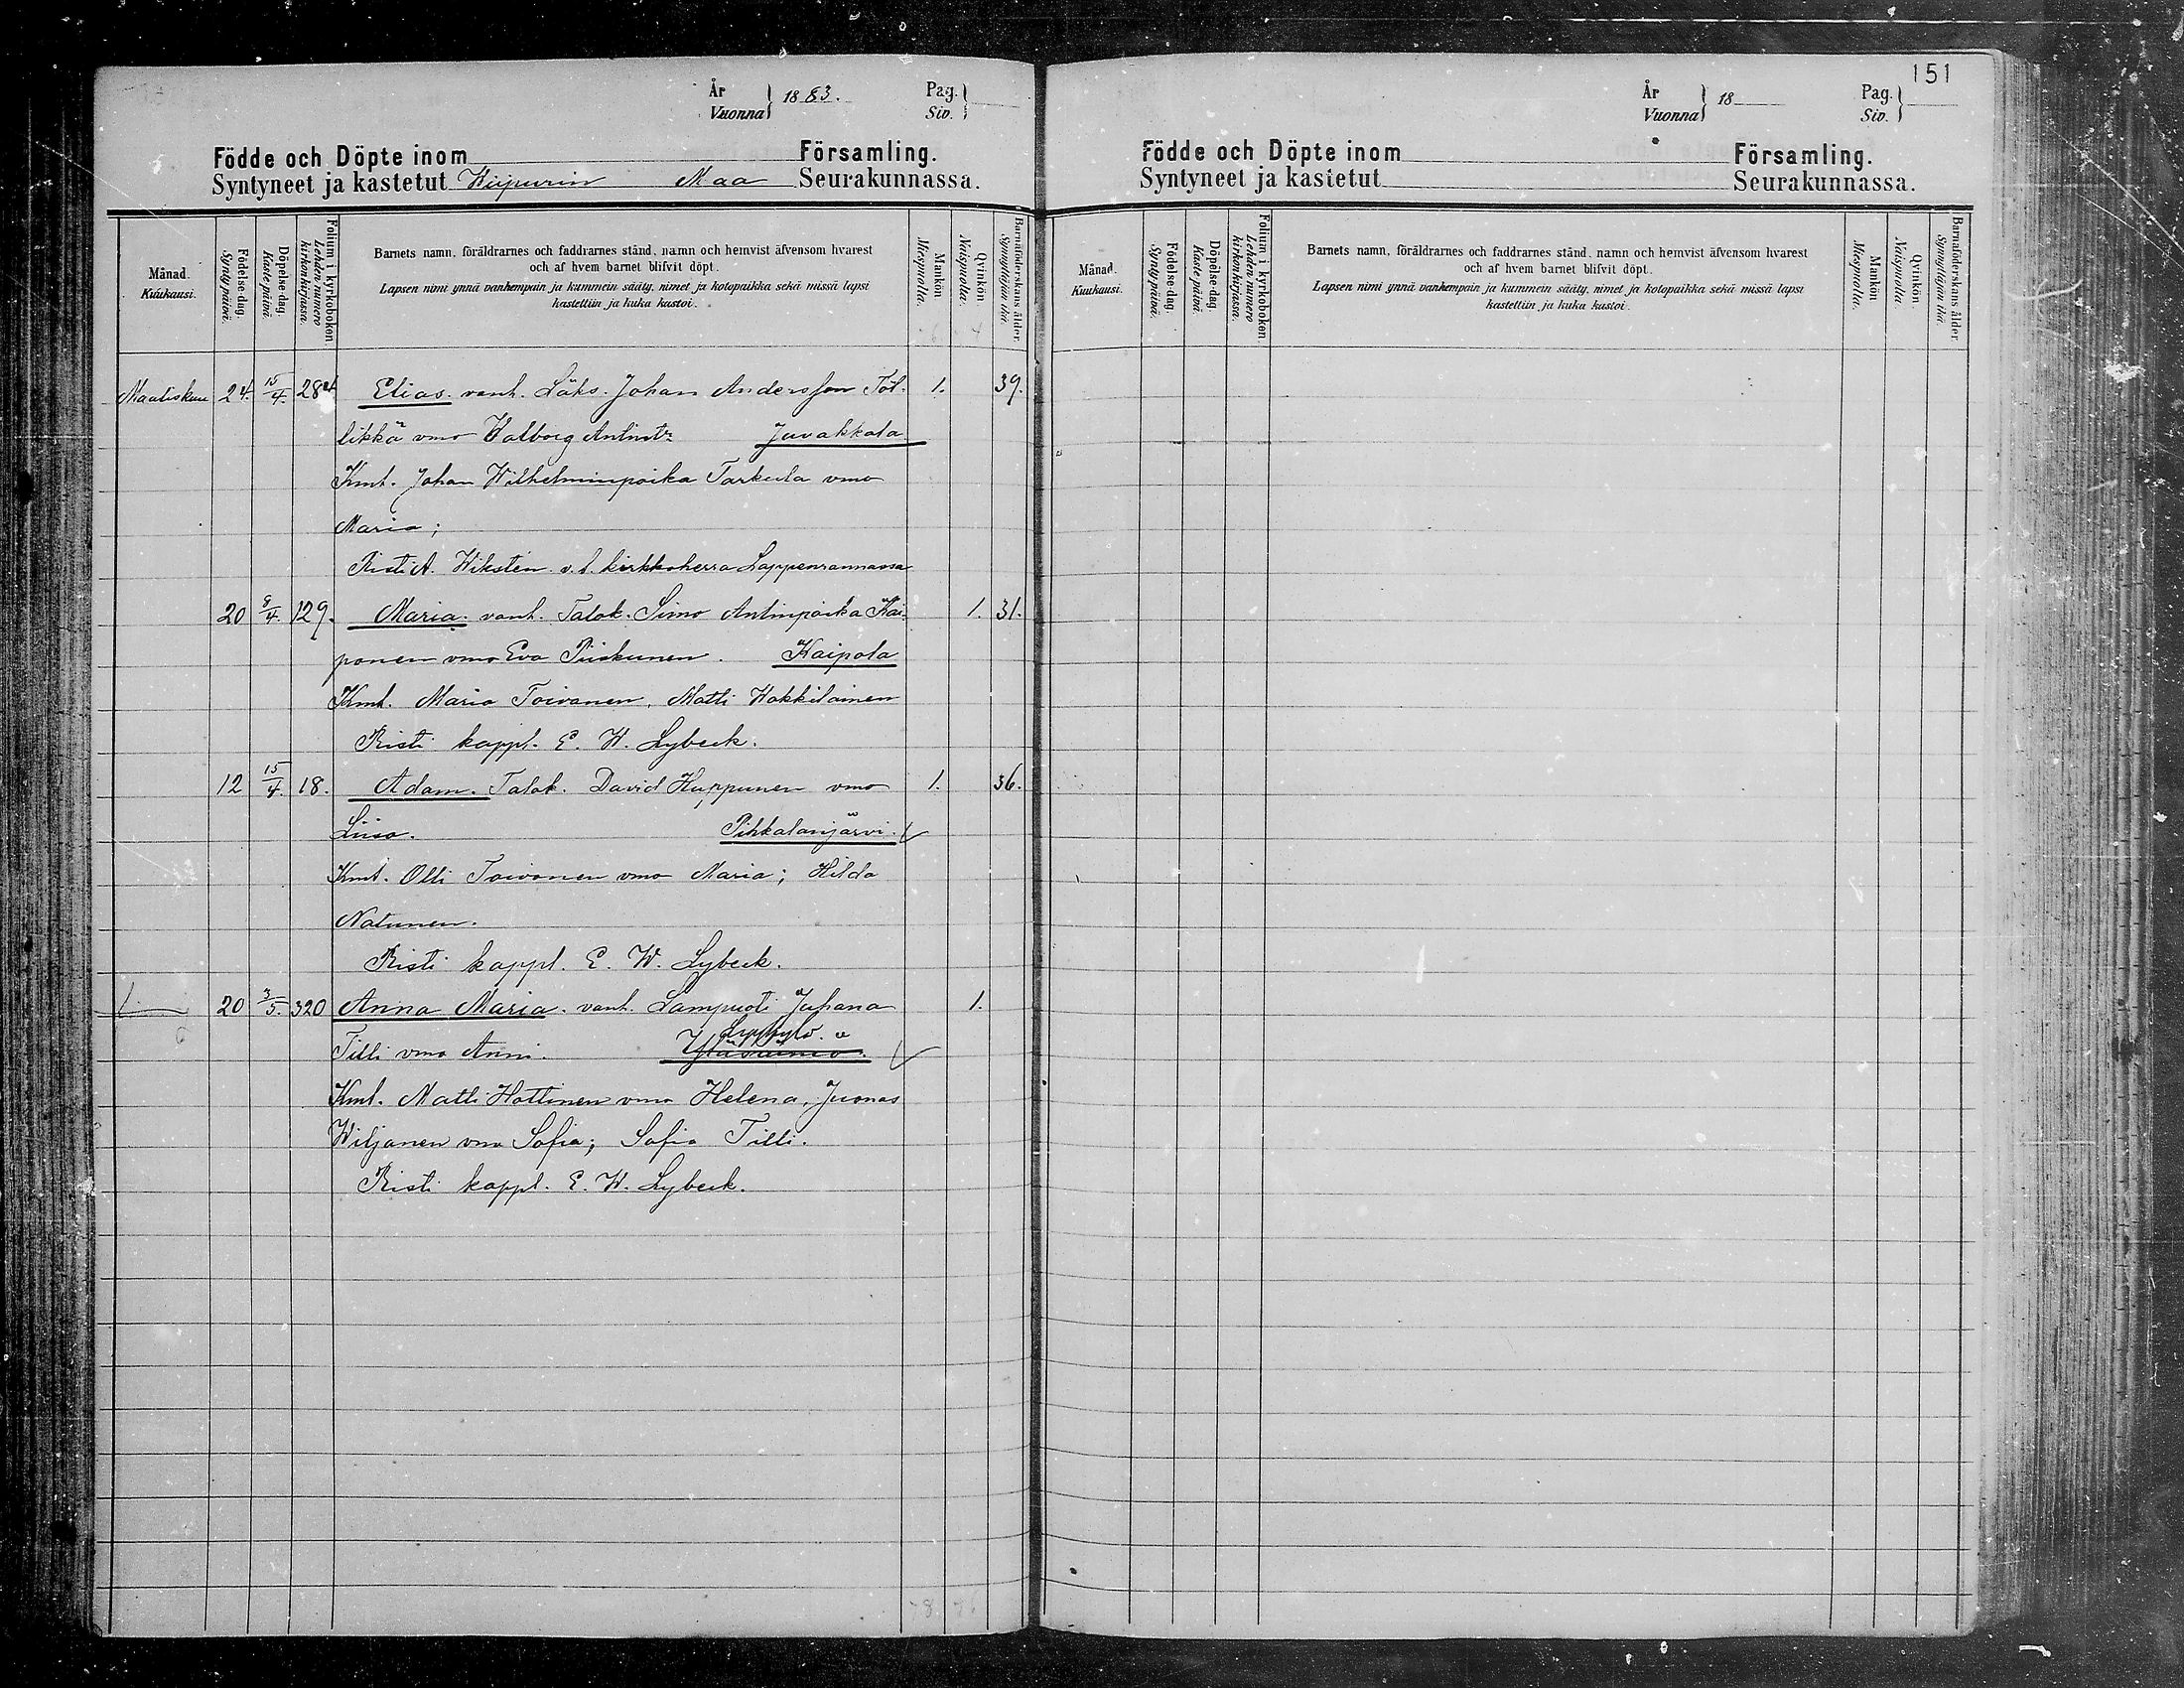 151
År
Vuonna } 1883.
Pag.
Siv. }
Födde och Döpte inom Församling.
Syntyneet ja kastetut Wiipurin Maa Seurakunnassa.
Månad.
Kuukausi.
Födelse-dag.
Synty päivä.
Döpelse-dag.
Kaste-päivä.
Folium i kyrkoboken
Lehden numero
kirkonkirjassa.
Barnets namn, föräldrarnes och faddrarnes stånd, namn och hemvist äfvensom hvarest
och af hvem barnet blifvit döpt.
Lapsen nimi ynnä vanhempain ja kummein sääty, nimet ja kotopaikka sekä missä lapsi
kastettiin ja kuka kastoi.
Mankön
Miespuolta.
Qvinkön
Naispuolta.
Barnaföderskans ålder
Synnyttäjän ikä.
6 4
Maaliskuu 24. 15/4. 28 Elias. vanh. Läks. Johan Andersson Töl- 1. 39.
likkä vmo Valborg Antint: Juvakkala
Kmt. Johan Wilhelminpoika Tarkula vmo
Maria;
Risti A. Wikstén v.t. kirkkoherra Lappenrannassa
20 8/4. 129. Maria. vanh. Talok. Simo Antinpoika Kai- 1. 31.
ponen vmo Eva Piiskunen. Kaipola
Kmt. Maria Toivonen, Matti Hokkilainen
Risti kappl. E. W. Lybeck.
12 15/4. 18. Adam. Talok. David Huppunen vmo 1. 36.
Liisa. Pihkalanjärvi.
Kmt. Olli Toivonen vmo Maria; Hilda
Natunen.
Risti kappl. E. W. Lybeck.
20 3/5. 320 Anna Maria. vanh. Lampuoti Juhana 1.
Tilli vmo Anni.
Kmt. Matti Hottinen vmo Helena, Juonas
Wiljanen vmo Sofia; Sofia Tilli.
Risti kappl. E. W. Lybeck.
78. 76
År
Vuonna } 18
Pag.
Siv. }
Födde och Döpte inom Församling.
Syntyneet ja kastetut Seurakunnassa.
Månad.
Kuukausi.
Födelse-dag.
Synty päivä.
Döpelse-dag.
Kaste-päivä.
Folium i kyrkoboken
Lehden numero
kirkonkirjassa.
Barnets namn, föräldrarnes och faddrarnes stånd, namn och hemvist äfvensom hvarest
och af hvem barnet blifvit döpt.
Lapsen nimi ynnä vanhempain ja kummein sääty, nimet ja kotopaikka sekä missä lapsi
kastettiin ja kuka kastoi.
Mankön
Miespuolta.
Qvinkön
Naispuolta.
Barnaföderskans ålder
Synnyttäjän ikä.